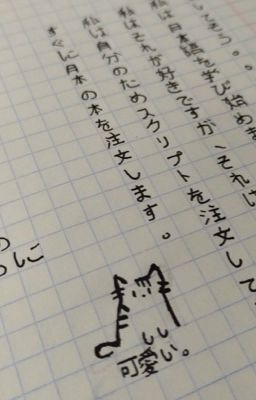 してそう。。
私は日本語を学び始めま
私はそれが好きですが、それは
私は自分のためスクリプトを注文して
すぐに日本の本を注文します。
のに
いい
可愛い。